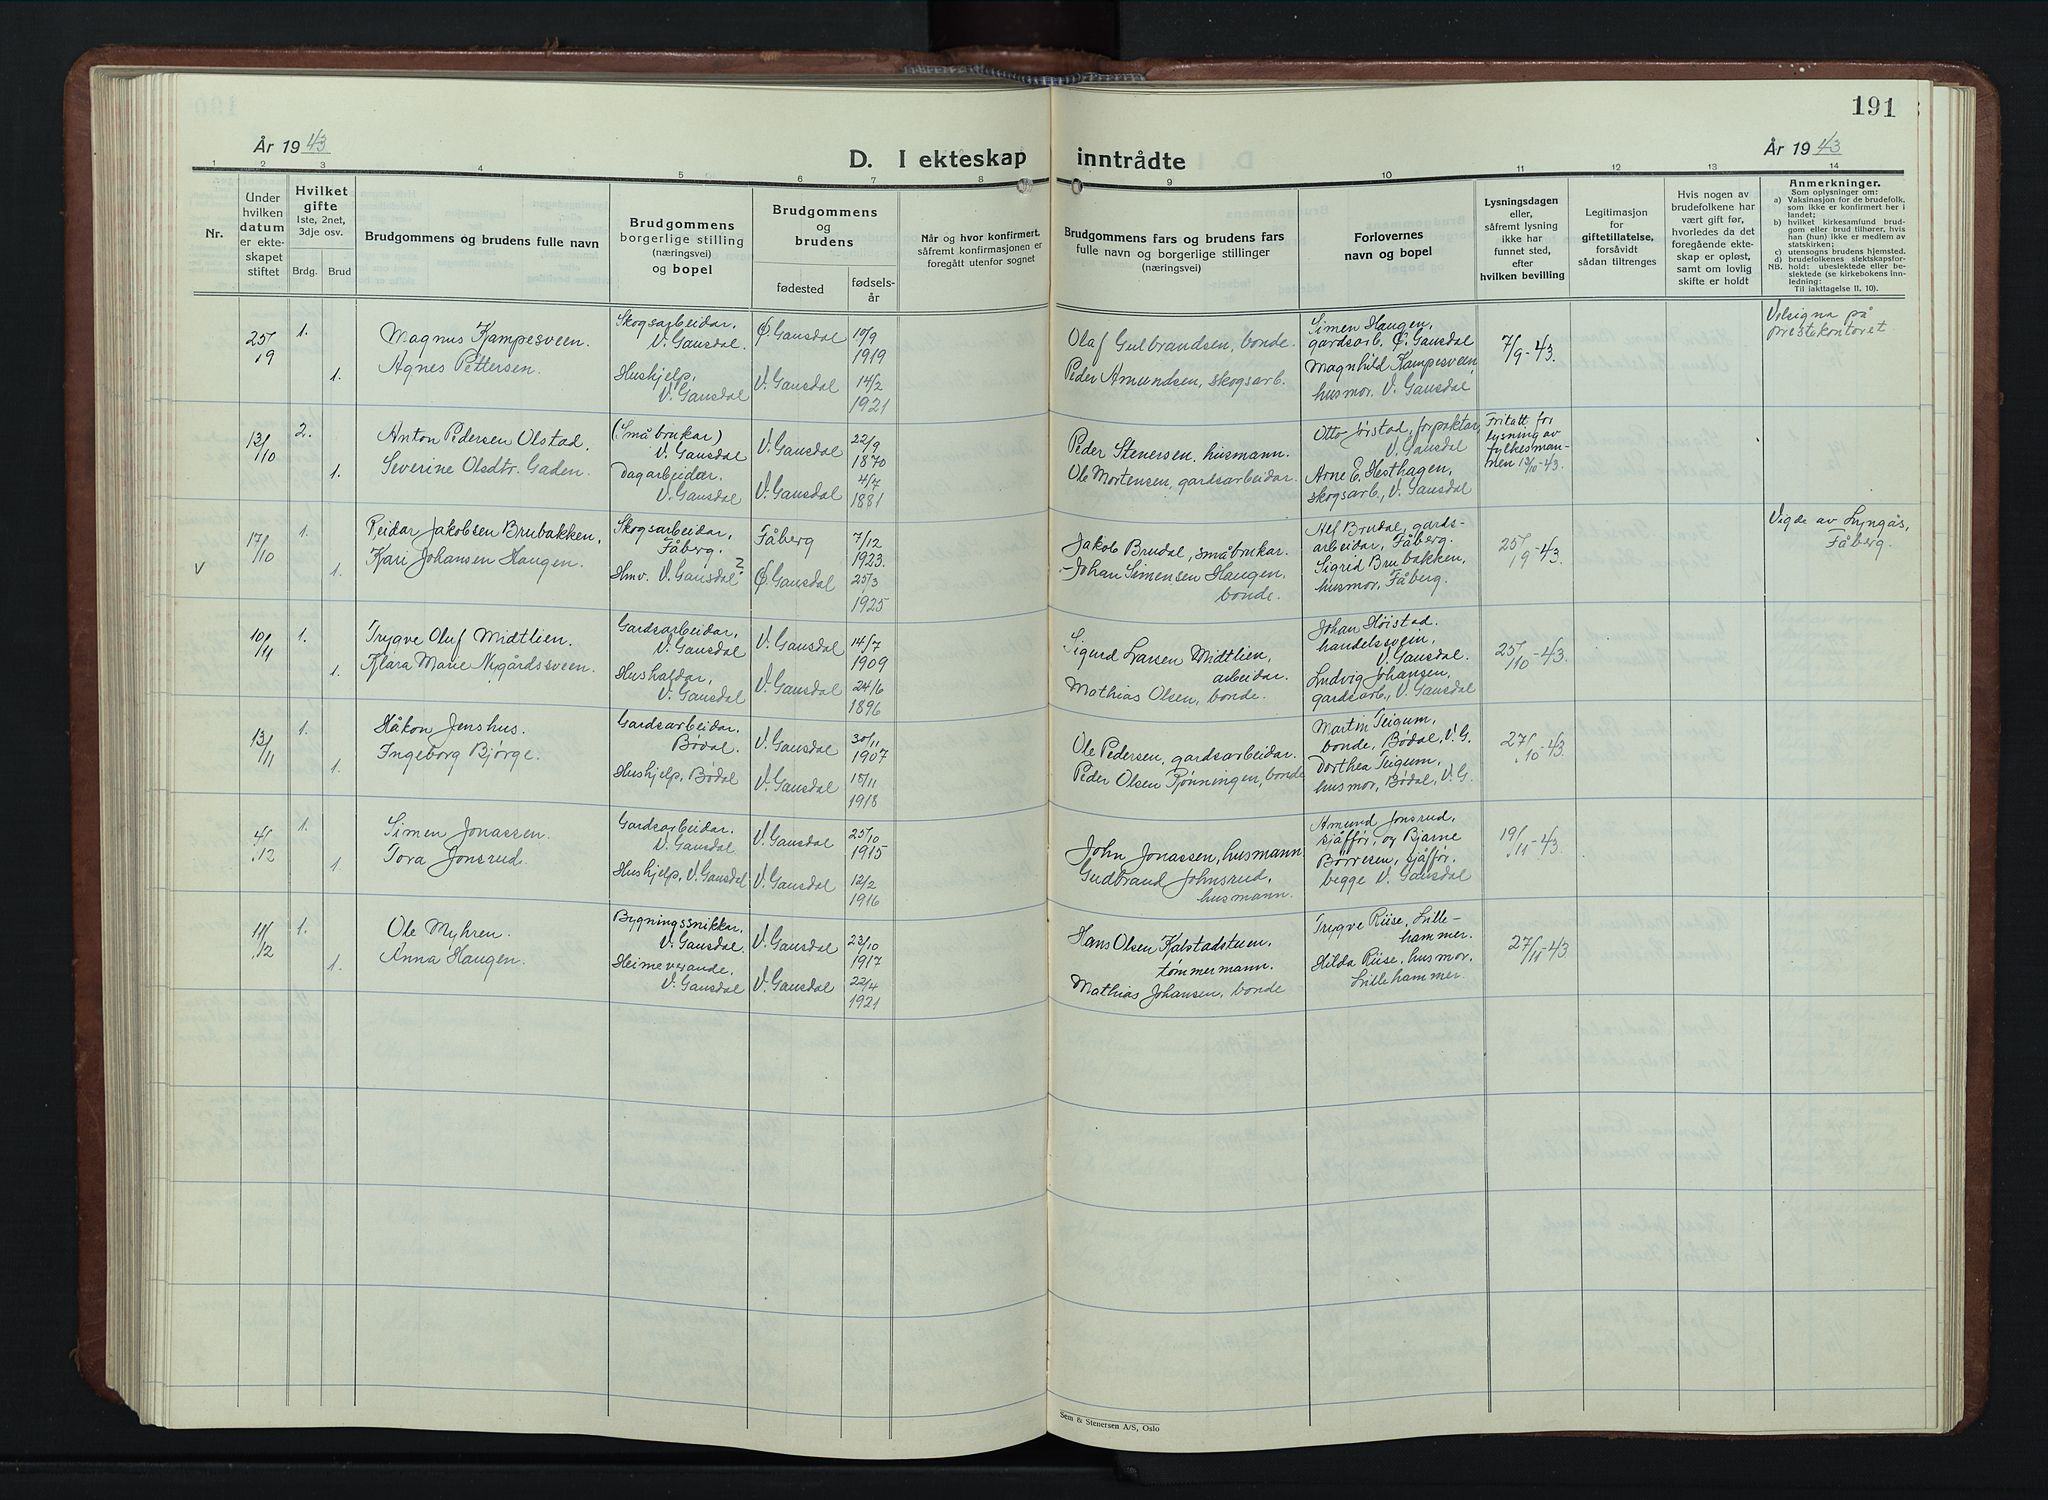 191
År 1943
D. I ekteskap inntrådte
År 1943
1 2 3 4 5 6 7 8 9 10 11 12 13 14
Nr.
Under hvilken datum er ekteskapet stiftet
Hvilket gifte
1ste, 2net, 3dje osv.
Brdg. Brud
Brudgommens og brudens fulle navn
Brudgommens borgerlige stilling (næringsvei) og bopel
Brudgommens og brudens
fødested
fødselsår
Når og hvor konfirmert, såfremt konfirmasjonen er foregått utenfor sognet
Brudgommens fars og brudens fars fulle navn og borgerlige stillinger (næringsvei)
Forlovernes navn og bopel
Lysningsdagen eller, såfremt lysning ikke har funnet sted, efter hvilken bevilling
Legitimasjon for giftetillatelse, forsåvidt sådan tiltrenges
Hvis nogen av brudefolkene har vært gift før, hvorledes da det foregående ekteskap er opløst, samt om lovlig skifte er holdt
Anmerkninger.
Som oplysninger om:
a) Vaksinasjon for de brudefolk, som ikke er konfirmert her i landet;
b) hvilket kirkesamfund brudgom eller brud tilhører, hvis han (hun) ikke er medlem av statskirken;
c) utensogns brudens hjemsted.
d) brudefolkenes slektskapsforhold:
NB. ubeslektede eller beslektede (se kirkebokens innledning: Til iakttagelse II, 10).
25/9 1. Magnus Kampesveen. Skogsarbeidar, V. Gausdal. Ø. Gausdal 10/9 1919 Olaf Gulbrandsen, bonde. Simen Haugen, gardsarb. Ø. Gausdal 7/9-43. Velsigna på prestekontoret
1. Agnes Pettersen. Hushjelp, V. Gausdal V. Gausdal 14/2 1921 Peder Amundsen, skogsarb. Magnhild Kampesveen, husmor, V. Gausdal
13/10 2. Anton Pedersen Olstad. (Småbrukar) V. Gausdal V. Gausdal 22/9 1870 Peder Stenersen, husmann. Otto Jørstad, forpaktar, V. Gausdal Fritatt for lysning av fylkesmannen 13/10-43.
1. Severine Olsdtr. Gaden. Dagarbeidar. V. Gausdal V. Gausdal 4/7 1881 Ole Mortensen, gardsarbeidar. Arne E. Hesthagen, skogsarb., V. Gausdal
V 17/10 1. Reidar Jakobsen Brubakken. Skogsarbeidar, Fåberg. Fåberg 7/12 1923. Jakob Brudal, småbrukar. Alf Brudal, gardsarbeidar, Fåberg. 25/9-43. Vigde av Lyngås, Fåberg.
1. Kari Johansen Haugen. Hmv. V. Gausdal? Ø. Gausdal 25/3 1925 Johan Simensen Haugen, bonde. Sigrid Brubakken, husmor, Fåberg.
10/11 1. Trygve Oluf Midtlien. Gardsarbeidar, V. Gausdal V. Gausdal 14/7 1909 Sigurd Larsen Midtlien, arbeidar. Johan Høistad. handelssvein, V. Gausdal. 25/10-43.
1. Klara Marie Nygårdssveen. Hushaldar, V. Gausdal V. Gausdal 24/6 1896 Mathias Olsen, bonde. Ludvig Johansen, gardsarb., V. Gausdal
13/11 1. Håkon Jenshus. Gardsarbeidar Bødal. V. Gausdal 30/11 1907 Ole Pedersen, gardsarbeidar. Martin Teigum, bonde, Bødal, V. G. 27/10-43.
1. Ingeborg Bjørge. Hushjelp, Bødal V. Gausdal 15/11 1918 Peder Olsen Rønningen, bonde Dorthea Teigum, husmor, Bødal, V. G.
4/12 1. Simen Jonassen. Gardsarbeidar. V. Gausdal V. Gausdal 25/10 1915 John Jonassen, husmann Amund Jonsrud, sjåffør, og Bjarne Børresen, sjåffør, begge V. Gausdal 19/11-43.
1. Tora Jonsrud. Hushjelp, V. Gausdal V. Gausdal 12/2 1916 Gudbrand Johnsrud, husmann.
11/12 1. Ole Myhren. Bygningssnikkar, V. Gausdal. V. Gausdal 23/10 1917 Hans Olsen Kalstadstuen, tømmermann. Trygve Riise, Lillehammer. 27/11-43
1. Anna Haugen. Heimeverande, V. Gausdal V. Gausdal 22/4 1921 Mathias Johansen, bonde Hilda Riise, husmor, Lillehammer.
Sem & Stenersen A/S, Oslo